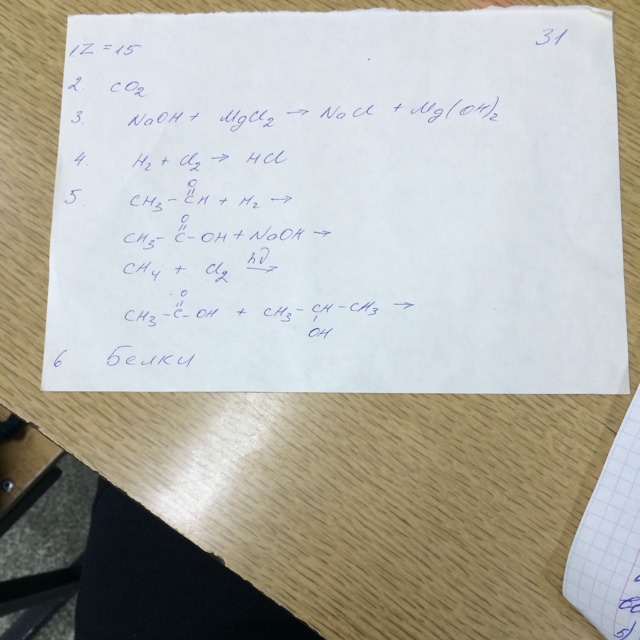 31
1Z = 15
2. CO2
3. NaOH + MgCl2 → NaCl + Mg(OH)2
4. H2 + Cl2 → HCl
O
5. CH3 - CH + H2 →
O
CH3 - C - OH + NaOH →
CH4 + Cl2 hν →
O
CH3 - C - OH + CH3 - CH - CH3 →
OH
6 Белки